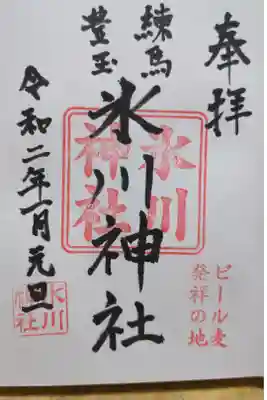 奉拝
ビール麦
発祥の地
練馬
豊玉
氷川神社
氷川
神社
令和二年一月元旦
氷川
神社